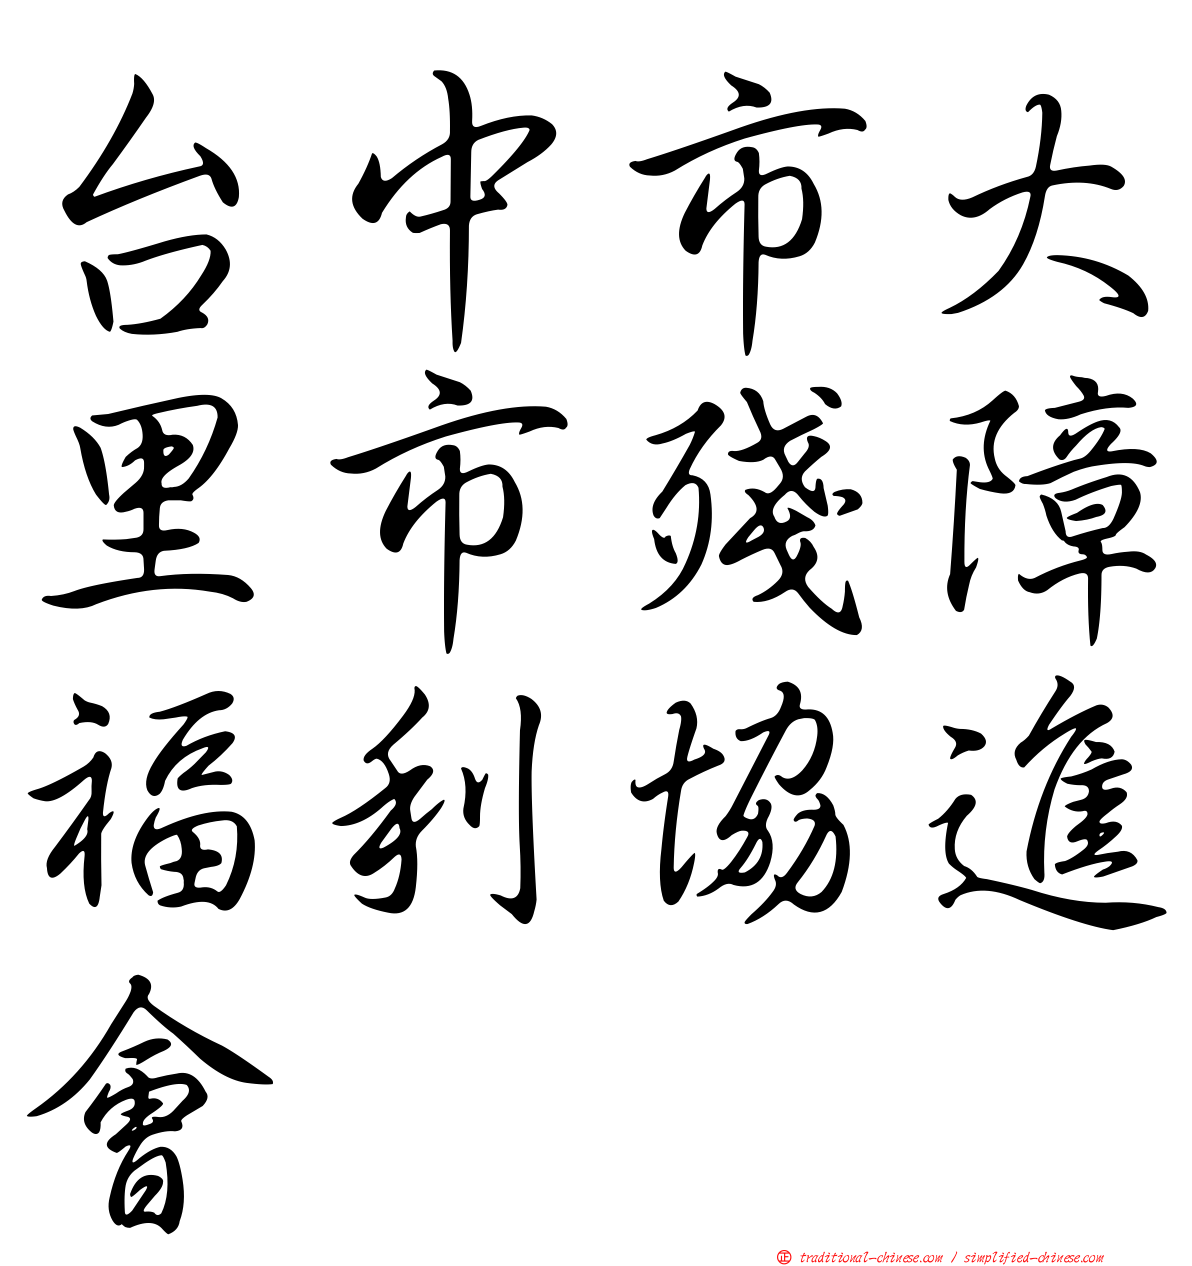 台中市大
里市殘障
福利協進
會
㊣ traditional-chinese.com / simplified-chinese.com